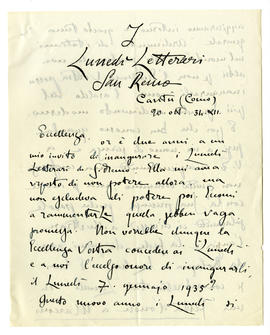 I
Lunedì Letterari
San Remo
Cantù (Como)
20 ott. 34. XII.
Eccellenza, or è due anni, a un
mio invito di inaugurare i Lunedì
Letterari di S. Remo Ella mi aveva
risposto di non potere allora, ma
non escludeva di potere poi. Eccomi
a rammentarLe quella sebben vaga
promessa. Non vorrebbe dunque la
Eccellenza Vostra concedere ai Lunedì
e a noi l'eccelso onore di inaugurarli,
il Lunedì 7 gennajo 1935?
Questo nuovo anno i Lunedì di